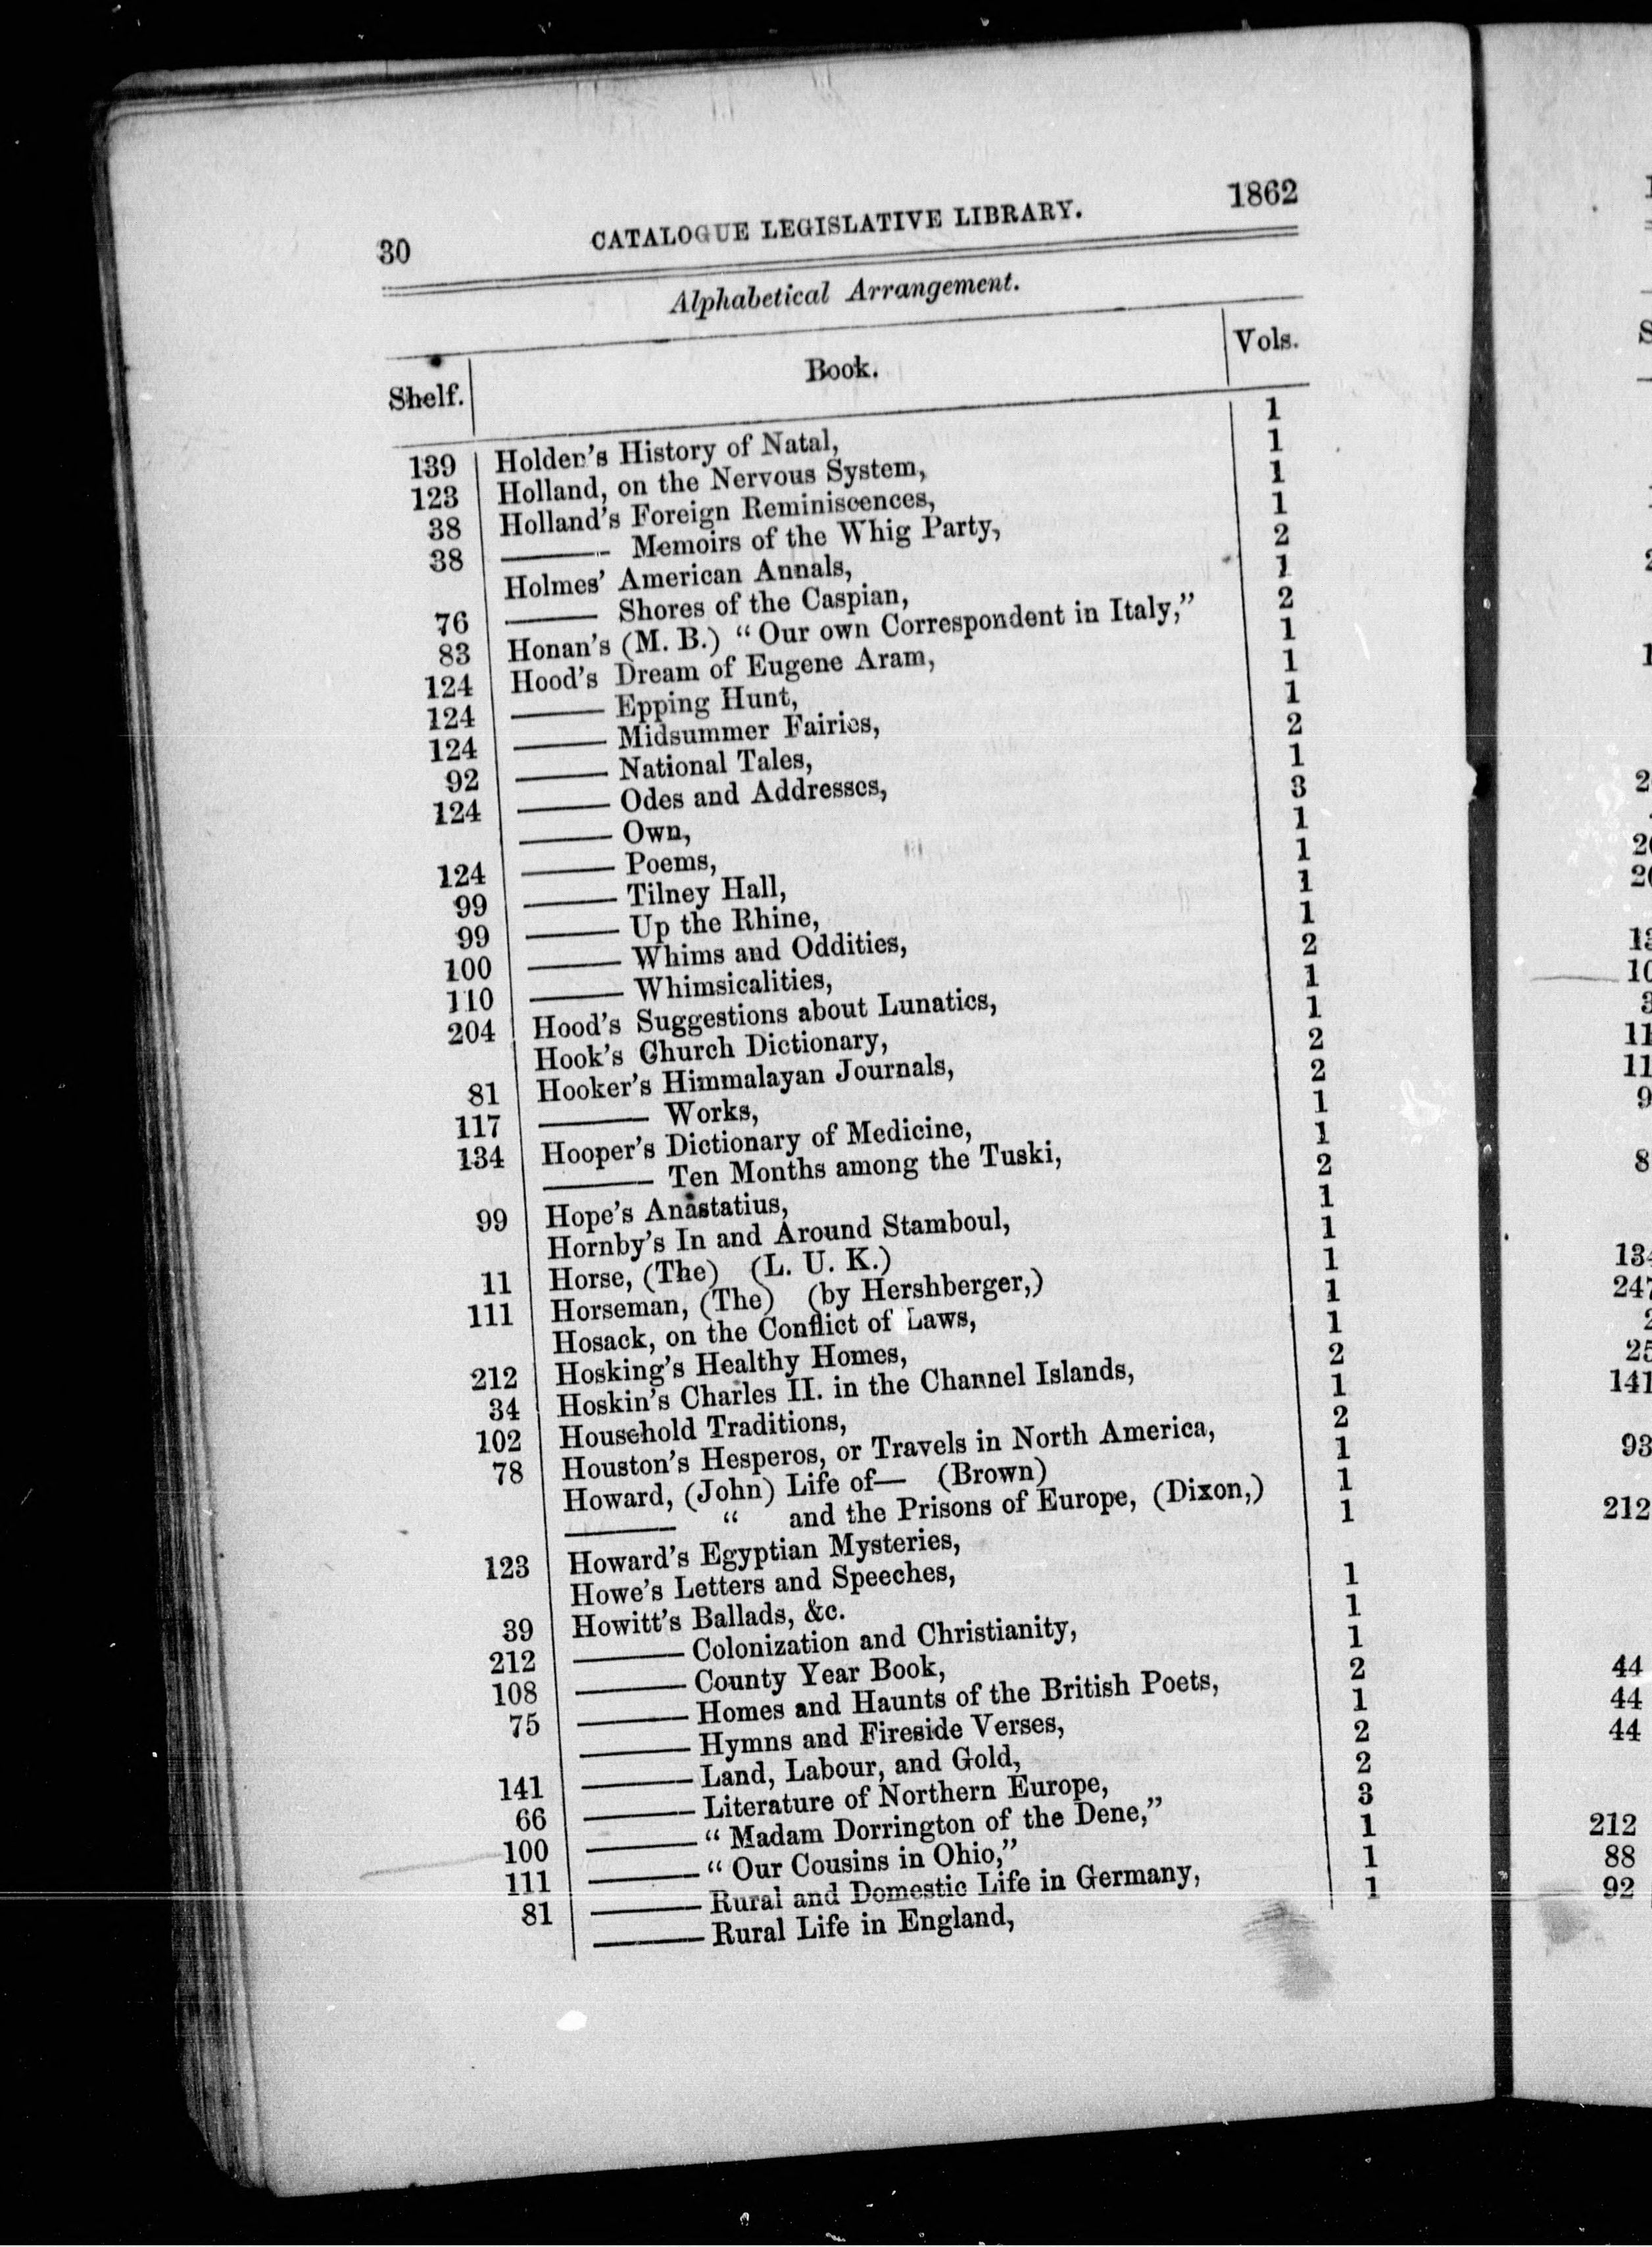 30 CATALOGUE LEGISLATIVE LIBRARY. 1862
Alphabetical Arrangement.
Shelf. Book. Vols.
139 Holden's History of Natal, 1
123 Holland, on the Nervous System, 1
38 Holland's Foreign Reminiscences, 1
38 ——— Memoirs of the Whig Party, 1
Holmes' American Annals, 2
76 ——— Shores of the Caspian, 1
83 Honan's (M. B.) “Our own Correspondent in Italy,” 2
124 Hood's Dream of Eugene Aram, 1
124 ——— Epping Hunt, 1
124 ——— Midsummer Fairies, 1
92 ——— National Tales, 2
124 ——— Odes and Addresses, 1
——— Own, 3
124 ——— Poems, 1
99 ——— Tilney Hall, 1
99 ——— Up the Rhine, 1
100 ——— Whims and Oddities, 1
110 ——— Whimsicalities, 2
204 Hood's Suggestions about Lunatics, 1
Hook's Church Dictionary, 1
81 Hooker's Himmalayan Journals, 2
117 ——— Works, 2
134 Hooper's Dictionary of Medicine, 1
——— Ten Months among the Tuski, 1
99 Hope's Anastatius, 2
Hornby's In and Around Stamboul, 1
11 Horse, (The) (L. U. K.) 1
111 Horseman, (The) (by Hershberger,) 1
Hosack, on the Conflict of Laws, 1
212 Hosking's Healthy Homes, 1
34 Hoskin's Charles II. in the Channel Islands, 2
102 Household Traditions, 1
78 Houston's Hesperos, or Travels in North America, 2
Howard, (John) Life of— (Brown) 1
——— “ and the Prisons of Europe, (Dixon,) 1
123 Howard's Egyptian Mysteries, 1
Howe's Letters and Speeches,
39 Howitt's Ballads, &c. 1
212 ——— Colonization and Christianity, 1
108 ——— County Year Book, 1
75 ——— Homes and Haunts of the British Poets, 2
——— Hymns and Fireside Verses, 1
141 ——— Land, Labour, and Gold, 2
66 ——— Literature of Northern Europe, 2
100 ——— “Madam Dorrington of the Dene,” 3
111 ——— “Our Cousins in Ohio,” 1
81 ——— Rural and Domestic Life in Germany, 1
——— Rural Life in England, 1
93
212
44
44
44
212
88
92